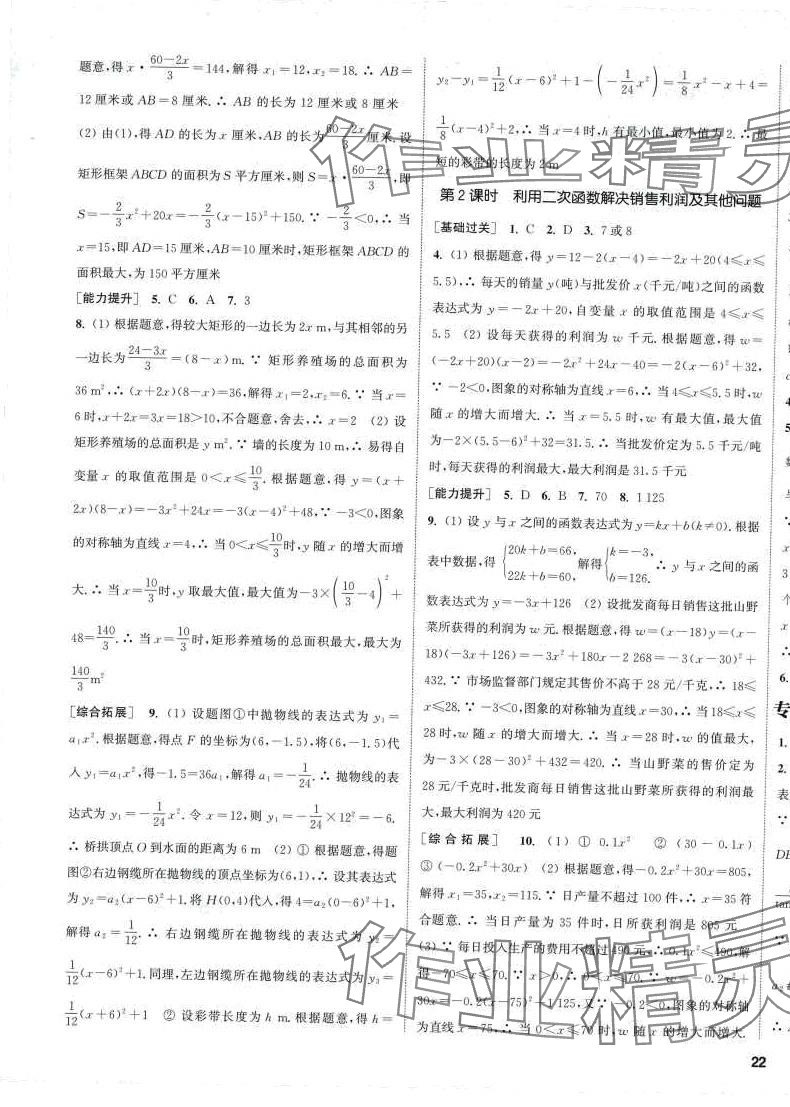 题意,得x·(60-2x)/3=144,解得x₁=12,x₂=18.∴ AB=
12厘米或AB=8厘米.∴ AB的长为12厘米或8厘米
(2) 由(1),得AD的长为x厘米,AB的长为(60-2x)/3厘米.设
矩形框架ABCD的面积为S平方厘米,则S=x·(60-2x)/3,即
S=-2/3x²+20x=-2/3(x-15)²+150.∵ -2/3<0,∴ 当
x=15,即AD=15厘米,AB=10厘米时,矩形框架ABCD的
面积最大,为150平方厘米
[能力提升] 5. C 6. A 7. 3
8. (1) 根据题意,得较大矩形的一边长为2x m,与其相邻的另
一边长为(24-3x)/3=(8-x)m.∵ 矩形养殖场的总面积为
36 m²,∴ (x+2x)(8-x)=36,解得x₁=2,x₂=6.∵ 当x=
6时,x+2x=3x=18>10,不合题意,舍去,∴ x=2 (2) 设
矩形养殖场的总面积是y m².∵ 墙的长度为10 m,∴ 易得自
变量x的取值范围是0<x≤10/3.根据题意,得y=(x+
2x)(8-x)=-3x²+24x=-3(x-4)²+48,∵ -3<0,图象
的对称轴为直线x=4,∴ 当0<x≤10/3时,y随x的增大而增
大.∴ 当x=10/3时,y取最大值,最大值为-3×(10/3-4)²+
48=140/3.∴ 当x=10/3时,矩形养殖场的总面积最大,最大为
140/3 m²
[综合拓展] 9. (1) 设题图①中抛物线的表达式为y₁=
a₁x².根据题意,得点F的坐标为(6,-1.5),将(6,-1.5)代
入y₁=a₁x²,得-1.5=36a₁,解得a₁=-1/24.∴ 抛物线的表
达式为y₁=-1/24x².令x=12,则y₁=-1/24×12²=-6.
∴ 桥拱顶点O到水面的距离为6 m (2) ① 根据题意,得题
图②右边钢缆所在抛物线的顶点坐标为(6,1),∴ 设其表达式
为y₂=a₂(x-6)²+1.将H(0,4)代入,得4=a₂(0-6)²+1,
解得a₂=1/12.∴ 右边钢缆所在抛物线的表达式为y₂=
1/12(x-6)²+1.同理,左边钢缆所在抛物线的表达式为y₃=
1/12(x+6)²+1 ② 设彩带长度为h m.根据题意,得h=
y₂-y₁=1/12(x-6)²+1-(-1/24x²)=1/8x²-x+4=
1/8(x-4)²+2,∴ 当x=4时,h有最小值,最小值为2.∴ 最
短的彩带的长度为2 m
第2课时 利用二次函数解决销售利润及其他问题
[基础过关] 1. C 2. D 3. 7或8
4. (1) 根据题意,得y=12-2(x-4)=-2x+20(4≤x≤
5.5),∴ 每天的销量y(吨)与批发价x(千元/吨)之间的函数
表达式为y=-2x+20,自变量x的取值范围是4≤x≤
5.5 (2) 设每天获得的利润为w千元.根据题意,得w=
(-2x+20)(x-2)=-2x²+24x-40=-2(x-6)²+32,
∵ -2<0,图象的对称轴为直线x=6,∴ 当4≤x≤5.5时,w
随x的增大而增大.∴ 当x=5.5时,w有最大值,最大值
为-2×(5.5-6)²+32=31.5.∴ 当批发价定为5.5千元/吨
时,每天获得的利润最大,最大利润是31.5千元
[能力提升] 5. D 6. B 7. 70 8. 1 125
9. (1) 设y与x之间的函数表达式为y=kx+b(k≠0).根据
表中数据,得{20k+b=66, 22k+b=60,解得{k=-3, b=126.∴ y与x之间的函
数表达式为y=-3x+126 (2) 设批发商每日销售这批山野
菜所获得的利润为w元.根据题意,得w=(x-18)y=(x-
18)(-3x+126)=-3x²+180x-2 268=-3(x-30)²+
432.∵ 市场监督部门规定其售价不高于28元/千克,∴ 18≤
x≤28.∵ -3<0,图象的对称轴为直线x=30,∴ 当18≤x≤
28时,w随x的增大而增大.∴ 当x=28时,w的值最大,
为-3×(28-30)²+432=420.∴ 当山野菜的售价定为
28元/千克时,批发商每日销售这批山野菜所获得的利润最
大,最大利润为420元
[综合拓展] 10. (1) ① 0.1x² ② (30-0.1x)
③ (-0.2x²+30x) (2) 根据题意,得-0.2x²+30x=805,
解得x₁=35,x₂=115.∵ 日产量不超过100件,∴ x=35符
合题意.∴ 当日产量为35件时,日所获利润是805元
(3) ∵ 每日投入生产的费用不超过490元,∴ 0.1x²≤490,解
得-70≤x≤70.∵ x>0,∴ 0<x≤70.∵ w=-0.2x²+
30x=-0.2(x-75)²+1 125,又∵ -0.2<0,图象的对称轴
为直线x=75,∴ 当0<x≤70时,w随x的增大而增大.
22
作业精灵
作业精灵